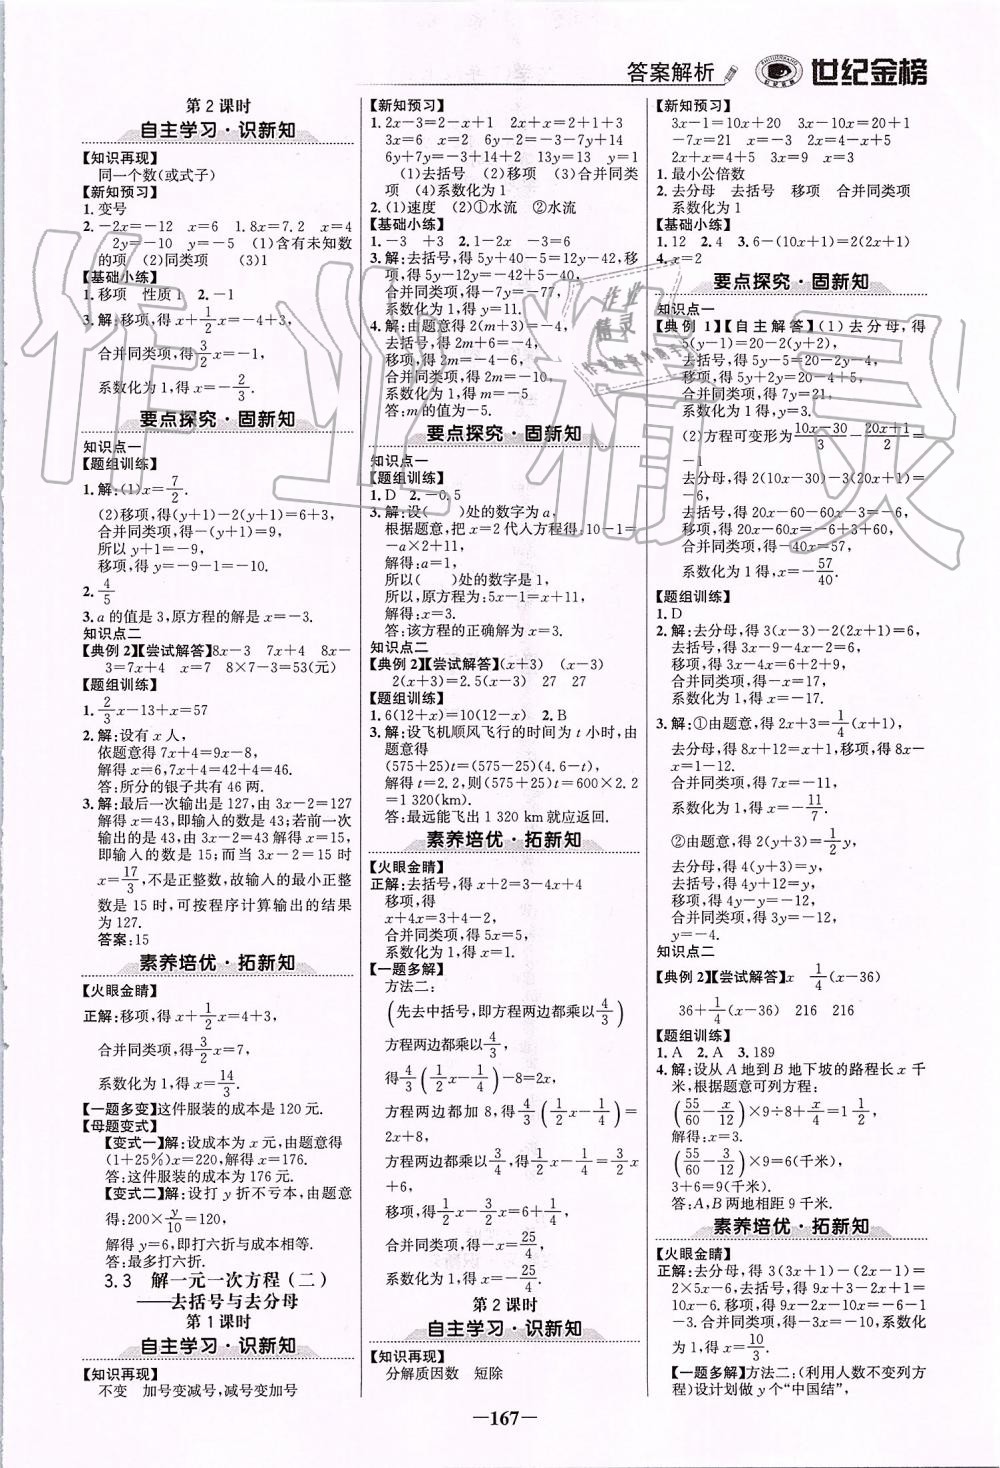 答案解析 世纪金榜
第2课时
自主学习·识新知
【知识再现】
同一个数(或式子)
【新知预习】
1.变号
2.-2x=-12 x=6 1.8x=7.2 x=4
2y=-10 y=-5 (1)含有未知数
的项 (2)同类项 (3)1
【基础小练】
1.移项 性质1 2.-1
3.解:移项,得x+1/2x=-4+3,
合并同类项,得3/2x=-1,
系数化为1,得x=-2/3.
要点探究·固新知
知识点一
【题组训练】
1.解:(1)x=7/2.
(2)移项,得(y+1)-2(y+1)=6+3,
合并同类项,得-(y+1)=9,
所以y+1=-9,
移项,得y=-9-1=-10.
2.4/5
3.a的值是3,原方程的解是x=-3.
知识点二
【典例2】【尝试解答】8x-3 7x+4 8x-
3=7x+4 x=7 8×7-3=53(元)
【题组训练】
1.2/3x-13+x=57
2.解:设有x人,
依题意得7x+4=9x-8,
解得x=6,7x+4=42+4=46.
答:所分的银子共有46两.
3.解:最后一次输出是127,由3x-2=127
解得x=43,即输入的数是43;若前一次
输出的是43,由3x-2=43解得x=15,
即输入的数是15;而当3x-2=15时
x=17/3,不是正整数,故输入的最小正整
数是15时,可按程序计算输出的结果
为127.
答案:15
素养培优·拓新知
【火眼金睛】
正解:移项,得x+1/2x=4+3,
合并同类项,得3/2x=7,
系数化为1,得x=14/3.
【一题多变】这件服装的成本是120元.
【母题变式】
【变式一】解:设成本为x元,由题意得
(1+25%)x=220,解得x=176.
答:这件服装的成本为176元.
【变式二】解:设打y折不亏本,由题意
得:200×y/10=120,
解得y=6,即打六折与成本相等.
答:最多打六折.
3.3 解一元一次方程(二)
——去括号与去分母
第1课时
自主学习·识新知
【知识再现】
不变 加号变减号,减号变加号
【新知预习】
1.2x-3=2-x+1 2x+x=2+1+3
3x=6 x=2 6y-2=-3-7y+14
6y+7y=-3+14+2 13y=13 y=1
(1)去括号 (2)移项 (3)合并同类
项 (4)系数化为1
2.(1)速度 (2)①水流 ②水流
【基础小练】
1.-3 +3 2.1-2x -3=6
3.解:去括号,得5y+40-5=12y-42,移
项,得5y-12y=-42+5-40,
合并同类项,得-7y=-77,
系数化为1,得y=11.
4.解:由题意得2(m+3)=-4,
去括号,得2m+6=-4,
移项,得2m=-4-6,
合并同类项,得2m=-10,
系数化为1,得m=-5
答:m的值为-5.
要点探究·固新知
知识点一
【题组训练】
1.D 2.-0.5
3.解:设( )处的数字为a,
根据题意,把x=2代入方程得:10-1=
-a×2+11,
解得:a=1,
所以( )处的数字是1,
所以,原方程为:5x-1=-x+11,
解得:x=3.
答:该方程的正确解为x=3.
知识点二
【典例2】【尝试解答】(x+3) (x-3)
2(x+3)=2.5(x-3) 27 27
【题组训练】
1.6(12+x)=10(12-x) 2.B
3.解:设飞机顺风飞行的时间为t小时,由
题意得
(575+25)t=(575-25)(4.6-t),
解得t=2.2,则(575+25)t=600×2.2
=1 320(km).
答:最远能飞出1 320 km就应返回.
素养培优·拓新知
【火眼金睛】
正解:去括号,得x+2=3-4x+4
移项,得
x+4x=3+4-2,
合并同类项,得5x=5,
系数化为1,得x=1.
【一题多解】
方法二:
(先去中括号,即方程两边都乘以4/3)
方程两边都乘以4/3,
得4/3(1/2x-1/4)-8=2x,
方程两边都加8,得4/3(1/2x-1/4)=
2x+8,
方程两边都乘以3/4,得1/2x-1/4=3/2x
+6,
移项,得1/2x-3/2x=6+1/4,
合并同类项,得-x=25/4,
系数化为1,得x=-25/4.
第2课时
自主学习·识新知
【知识再现】
分解质因数 短除
【新知预习】
3x-1=10x+20 3x-10x=20+1
-7x=21 x=-3 2x=4-x+5
2x+x=4+5 3x=9 x=3
1.最小公倍数
2.去分母 去括号 移项 合并同类项
系数化为1
【基础小练】
1.12 2.4 3.6-(10x+1)=2(2x+1)
4.x=2
要点探究·固新知
知识点一
【典例1】【自主解答】(1)去分母,得
5(y-1)=20-2(y+2),
去括号,得5y-5=20-2y-4,
移项,得5y+2y=20-4+5,
合并同类项,得7y=21,
系数化为1,得y=3.
(2)方程可变形为10x-30/3-20x+1/2=
-1
去分母,得2(10x-30)-3(20x+1)=-6,
去括号,得20x-60-60x-3=-6,
移项,得20x-60x=-6+3+60,
合并同类项,得-40x=57,
系数化为1,得x=-57/40.
【题组训练】
1.D
2.解:去分母,得3(x-3)-2(2x+1)=6,
去括号,得3x-9-4x-2=6,
移项,得3x-4x=6+2+9,
合并同类项,得-x=17,
系数化为1,得x=-17.
3.解:①由题意,得2x+3=1/4(x+1),
去分母,得8x+12=x+1,移项,得8x-
x=1-12,
合并同类项,得7x=-11,
系数化为1,得x=-11/7.
②由题意,得2(y+3)=1/2y,
去分母,得4(y+3)=y,
去括号,得4y+12=y,
移项,得4y-y=-12,
合并同类项,得3y=-12,
y=-4.
知识点二
【典例2】【尝试解答】x 1/4(x-36)
36+1/4(x-36) 216 216
【题组训练】
1.A 2.A 3.189
4.解:设从A地到B地下坡的路程长x千
米,根据题意可列方程:
(55/60-x/12)×9÷8+4/8=1 1/2,
解得:x=3.
(55/60-3/12)×9=6(千米),
3+6=9(千米).
答:A,B两地相距9千米.
素养培优·拓新知
【火眼金睛】
正解:去分母,得3(3x+1)-(2x-1)=
2×5x-6.去括号,得9x+3-2x+1=
10x-6.移项,得9x-2x-10x=-6-1-
3.合并同类项,得-3x=-10.系数化
为1,得x=10/3.
【一题多解】方法二:(利用人数不变列方
程)设计划做y个“中国结”,
—167—